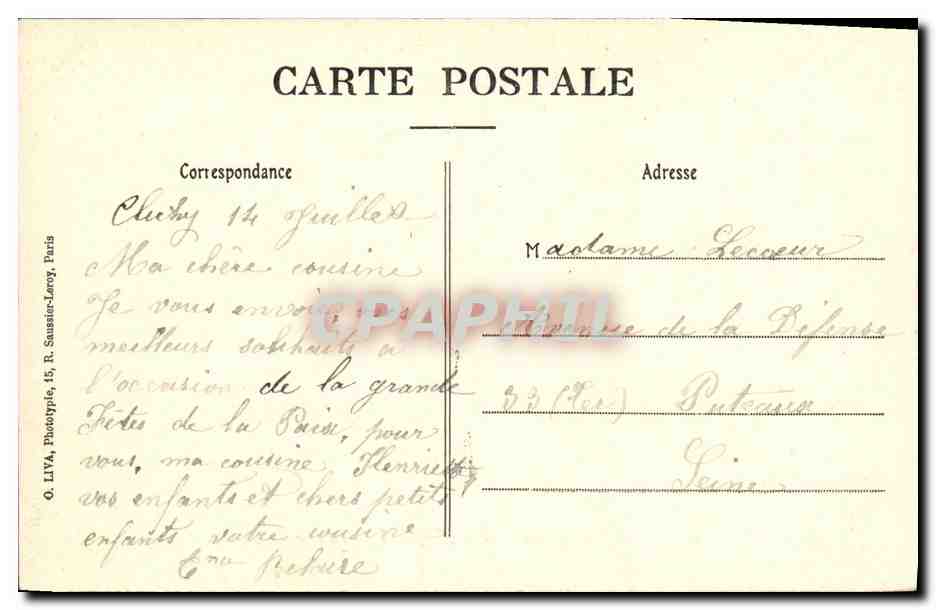 CARTE POSTALE
Correspondance
Clichy 14 Juillet
Ma chère cousine
Je vous envoie mes
meilleurs souhaits a
l'occasion de la grande
Fêtes de la Paix, pour
vous, ma cousine Henriette
vos enfants et chers petits
enfants votre cousine
Adresse
Madame Lecoeur
Avenue de la Défense
33 (Ter) Puteaux
Seine
O. LIVA, Phototypie, 15, R. Saussier-Leroy, Paris
CPAPHIL